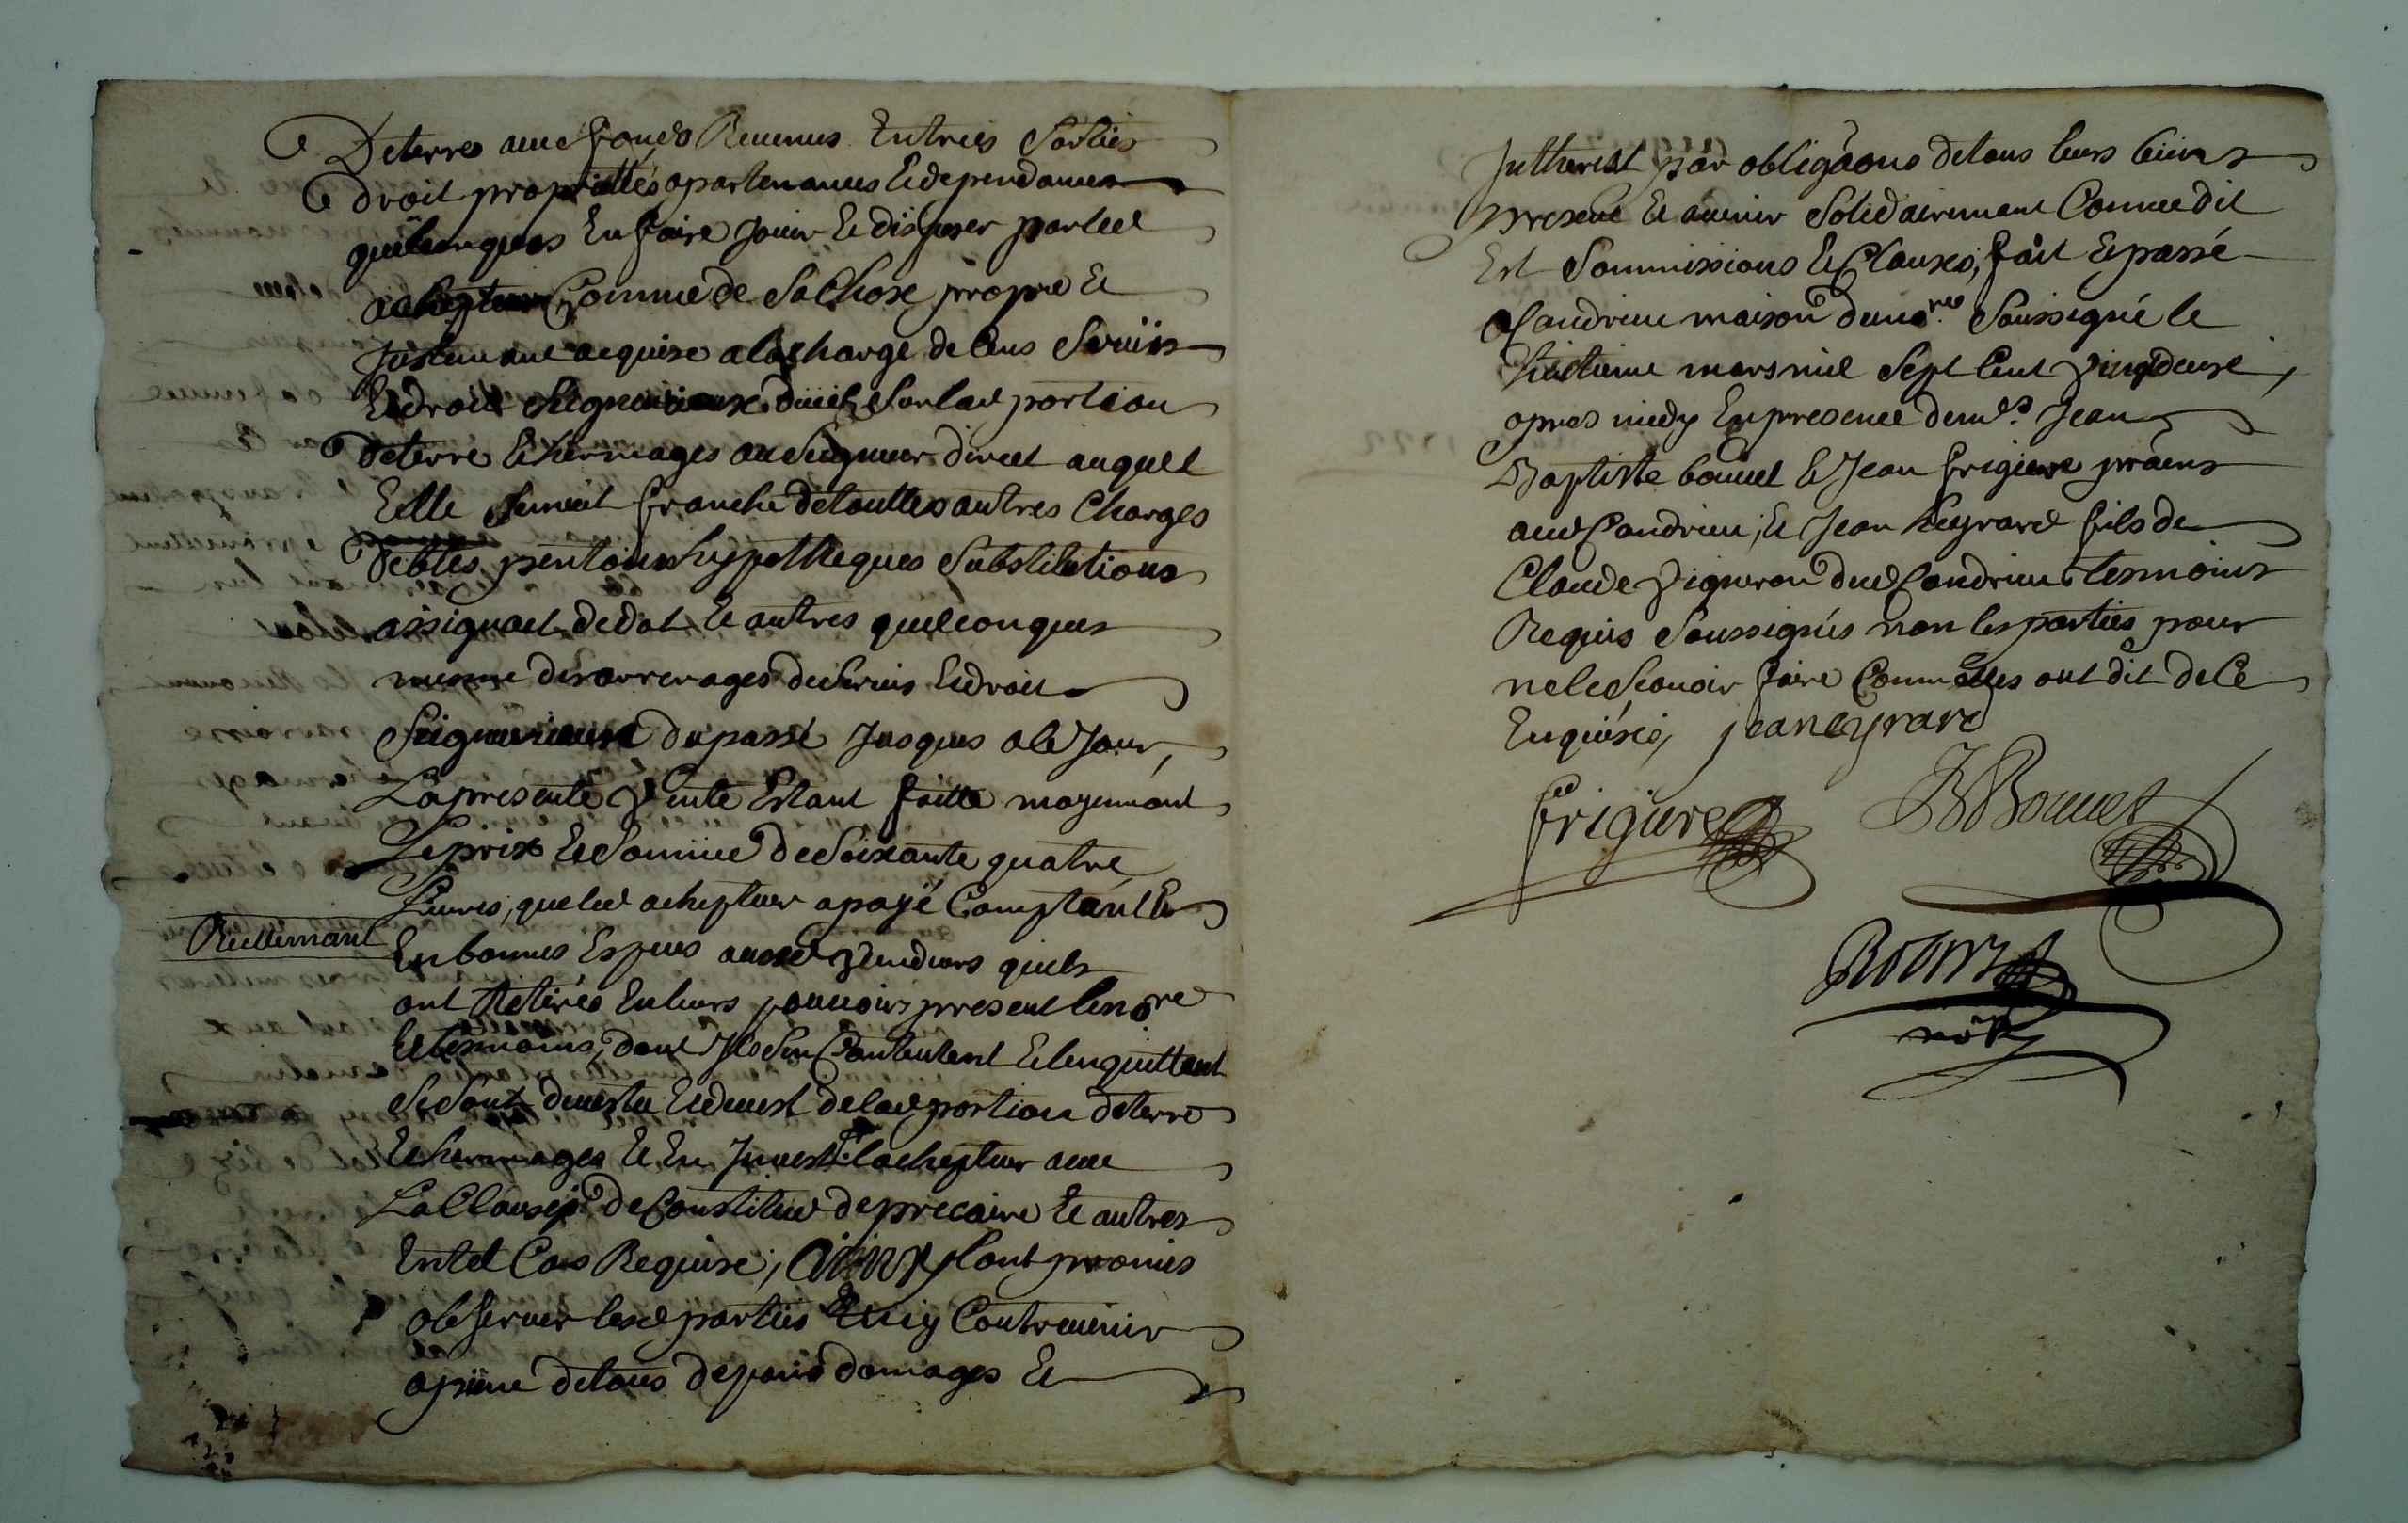 De terre avec fonds Revenus Entrées Sorties
droit propriettés apartenances Et dependances
quelconques En faire Jouir Et disposer par led
achepteur Comme de Sa Chose propre Et
Justemant acquise a la charge de Cens Servis
Et droit Seigneuriaux deüe Sur lad portion
de terre Et hermages au Seigneur direct auquel
Elle franche de touttes autres Charges
debtes pentions hypotheques Substitutions
assignaet de dot Et autres quelconques
mesme des arrerages de Servis Et droit
Seigneuriaux du passé Jusques a Ce Jour,
La presente Vente Estant faitte moyennant
Le prix Et Somme de Soixante quatre
Livres, que led achepteur a payé Comptant Et
Reellemant
En bonnes Especes auxd Vendeurs quils
ont Retirés En leurs pouvoirs present le nore
Et tesmoins, dont Ils Sen Contentent Et len quittent
Se Sont devestu Et devest de lad portion de terre
Et hermages Et En Investi lachepteur avec
La Clause de Constitut de precaire Et autres
En tel Cas Requise, ainsy lont promis
observer lesd parties Et ny Contrevenir
a peine de tous depans domages Et
Intherest par obligãons de tous leurs biens
present Et avenir Solidairemant Comme dit
Est Sommissions Et Clauses, fait Et passé
a Condrieu maison du nore Soussigné le
huictieme mars mil Sept Cent Vingt deuxe,
apres midy En presence de mes Jean
Baptiste bonnet Et Jean frigiere prãens
aud Condrieu, Et Jean heyrard fils de
Claude Vigneron dud Condrieu tesmoins
Requis Soussignés non les parties pour
ne le Scavoir faire Comme Elles ont dit de Ce
Enquises, jean eyrard
frigiere JBBonnet
nore